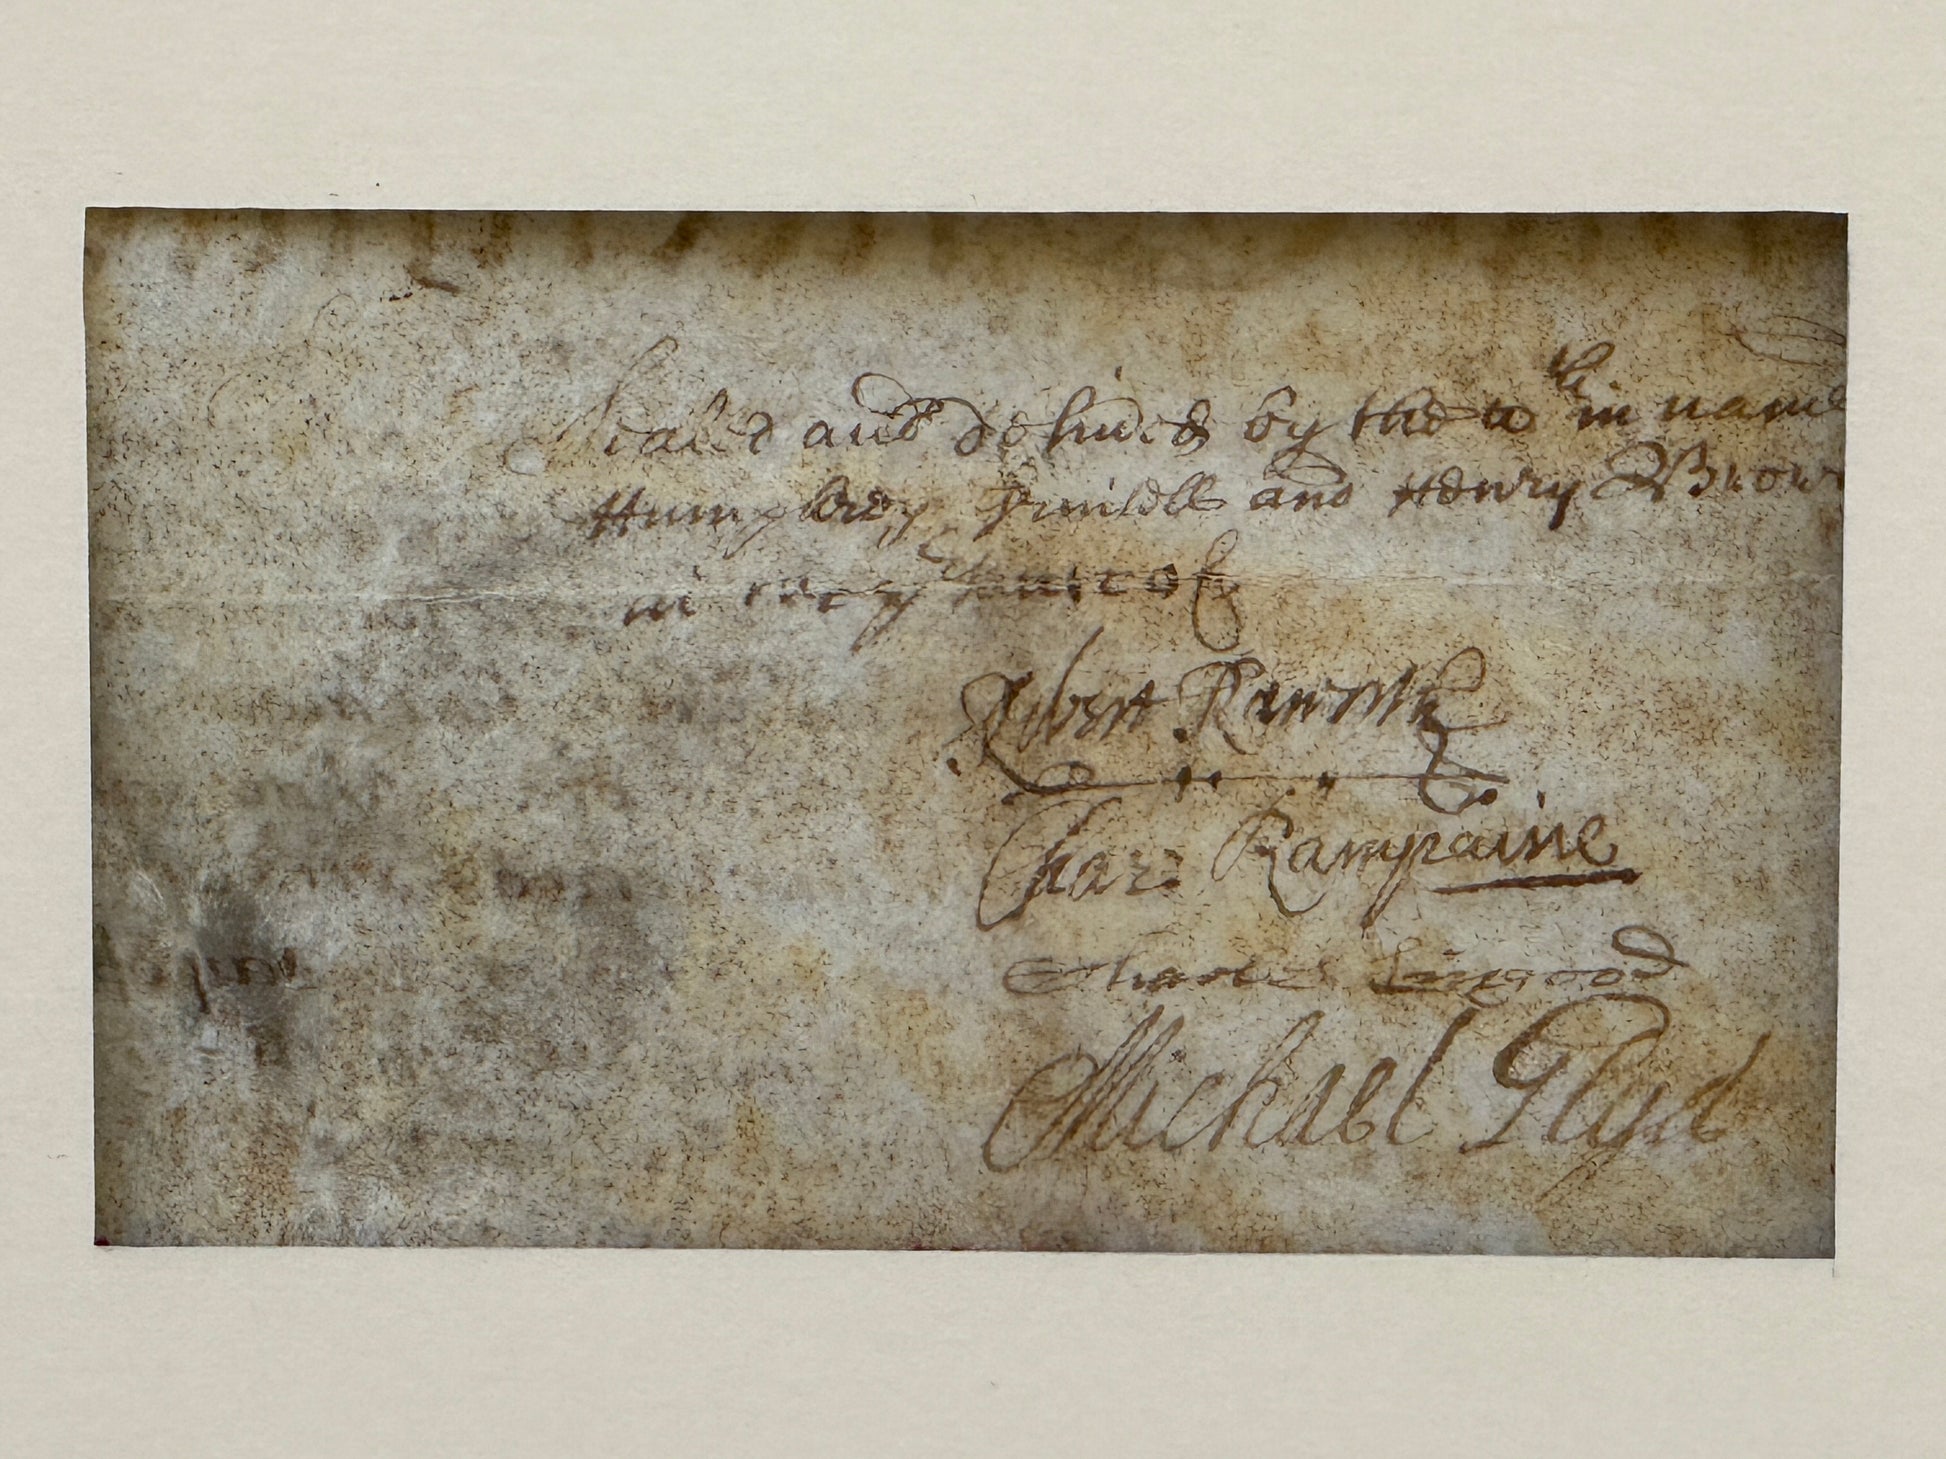 Sealed and delivered by the wthin name
Humphrey and Henry Brow
in the p'sence of
Robert Raworth
Char: Rampaine
Charles Lingood
Michael Glyd